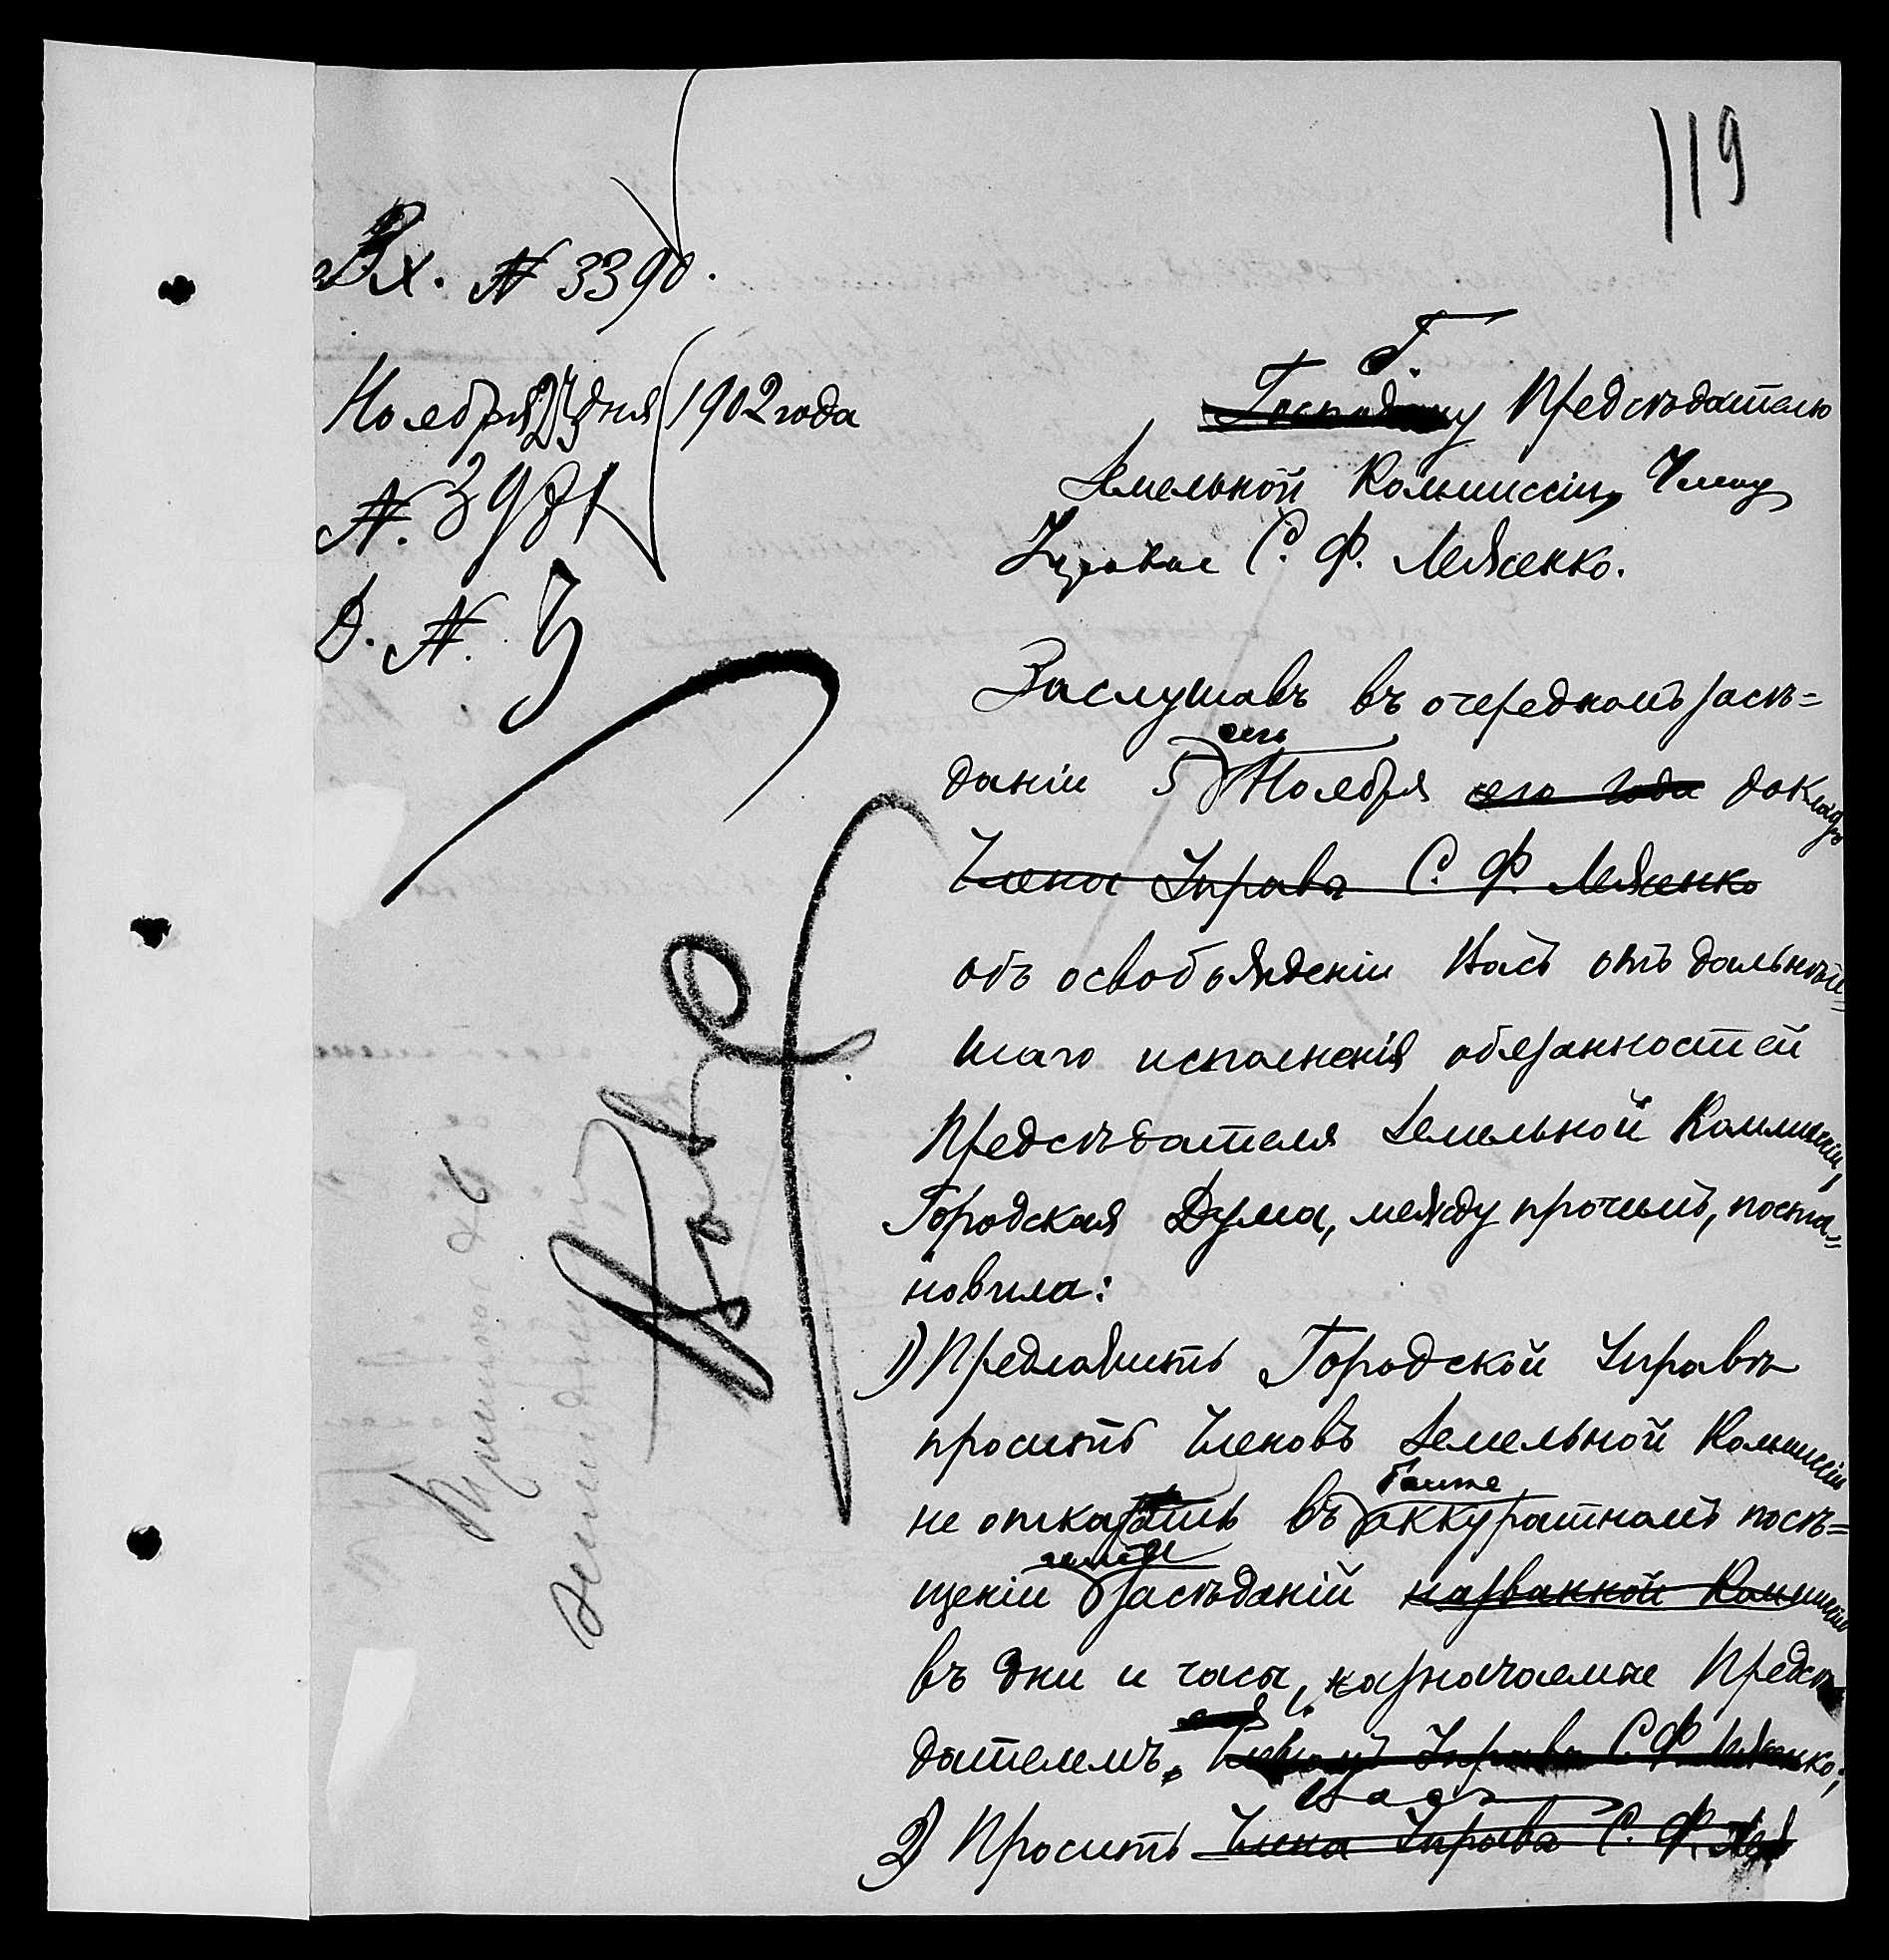 119
Вх. № 3390.
Ноября 23 дня 1902 года
№. 3981
Д. №.
Г.
Господину Предсѣдателю
Земельной Коммиссіи, Члену
Управы С. Ф. Леженко.
Заслушавъ въ очередномъ засѣ=
сего
даніи 5 Ноября сего года докладъ
Члена Управы С. Ф. Леженко
объ освобожденіи Васъ отъ дальнѣй=
шаго исполненія обязанностей
Предсѣдателя Земельной Коммиссіи,
Городская Дума, между прочимъ, поста=
новила:
1) Предложить Городской Управѣ
просить Членовъ Земельной Коммиссіи
болѣе
не отказать въ аккуратномъ посѣ=
щеніи засѣданій названной Коммиссіи
въ дни и часы, назначаемые Предсѣ
дателемъ, Членомъ Управы С. Ф. Леженко;
Васъ
2) Просить Члена Управы С. Ф. Леж